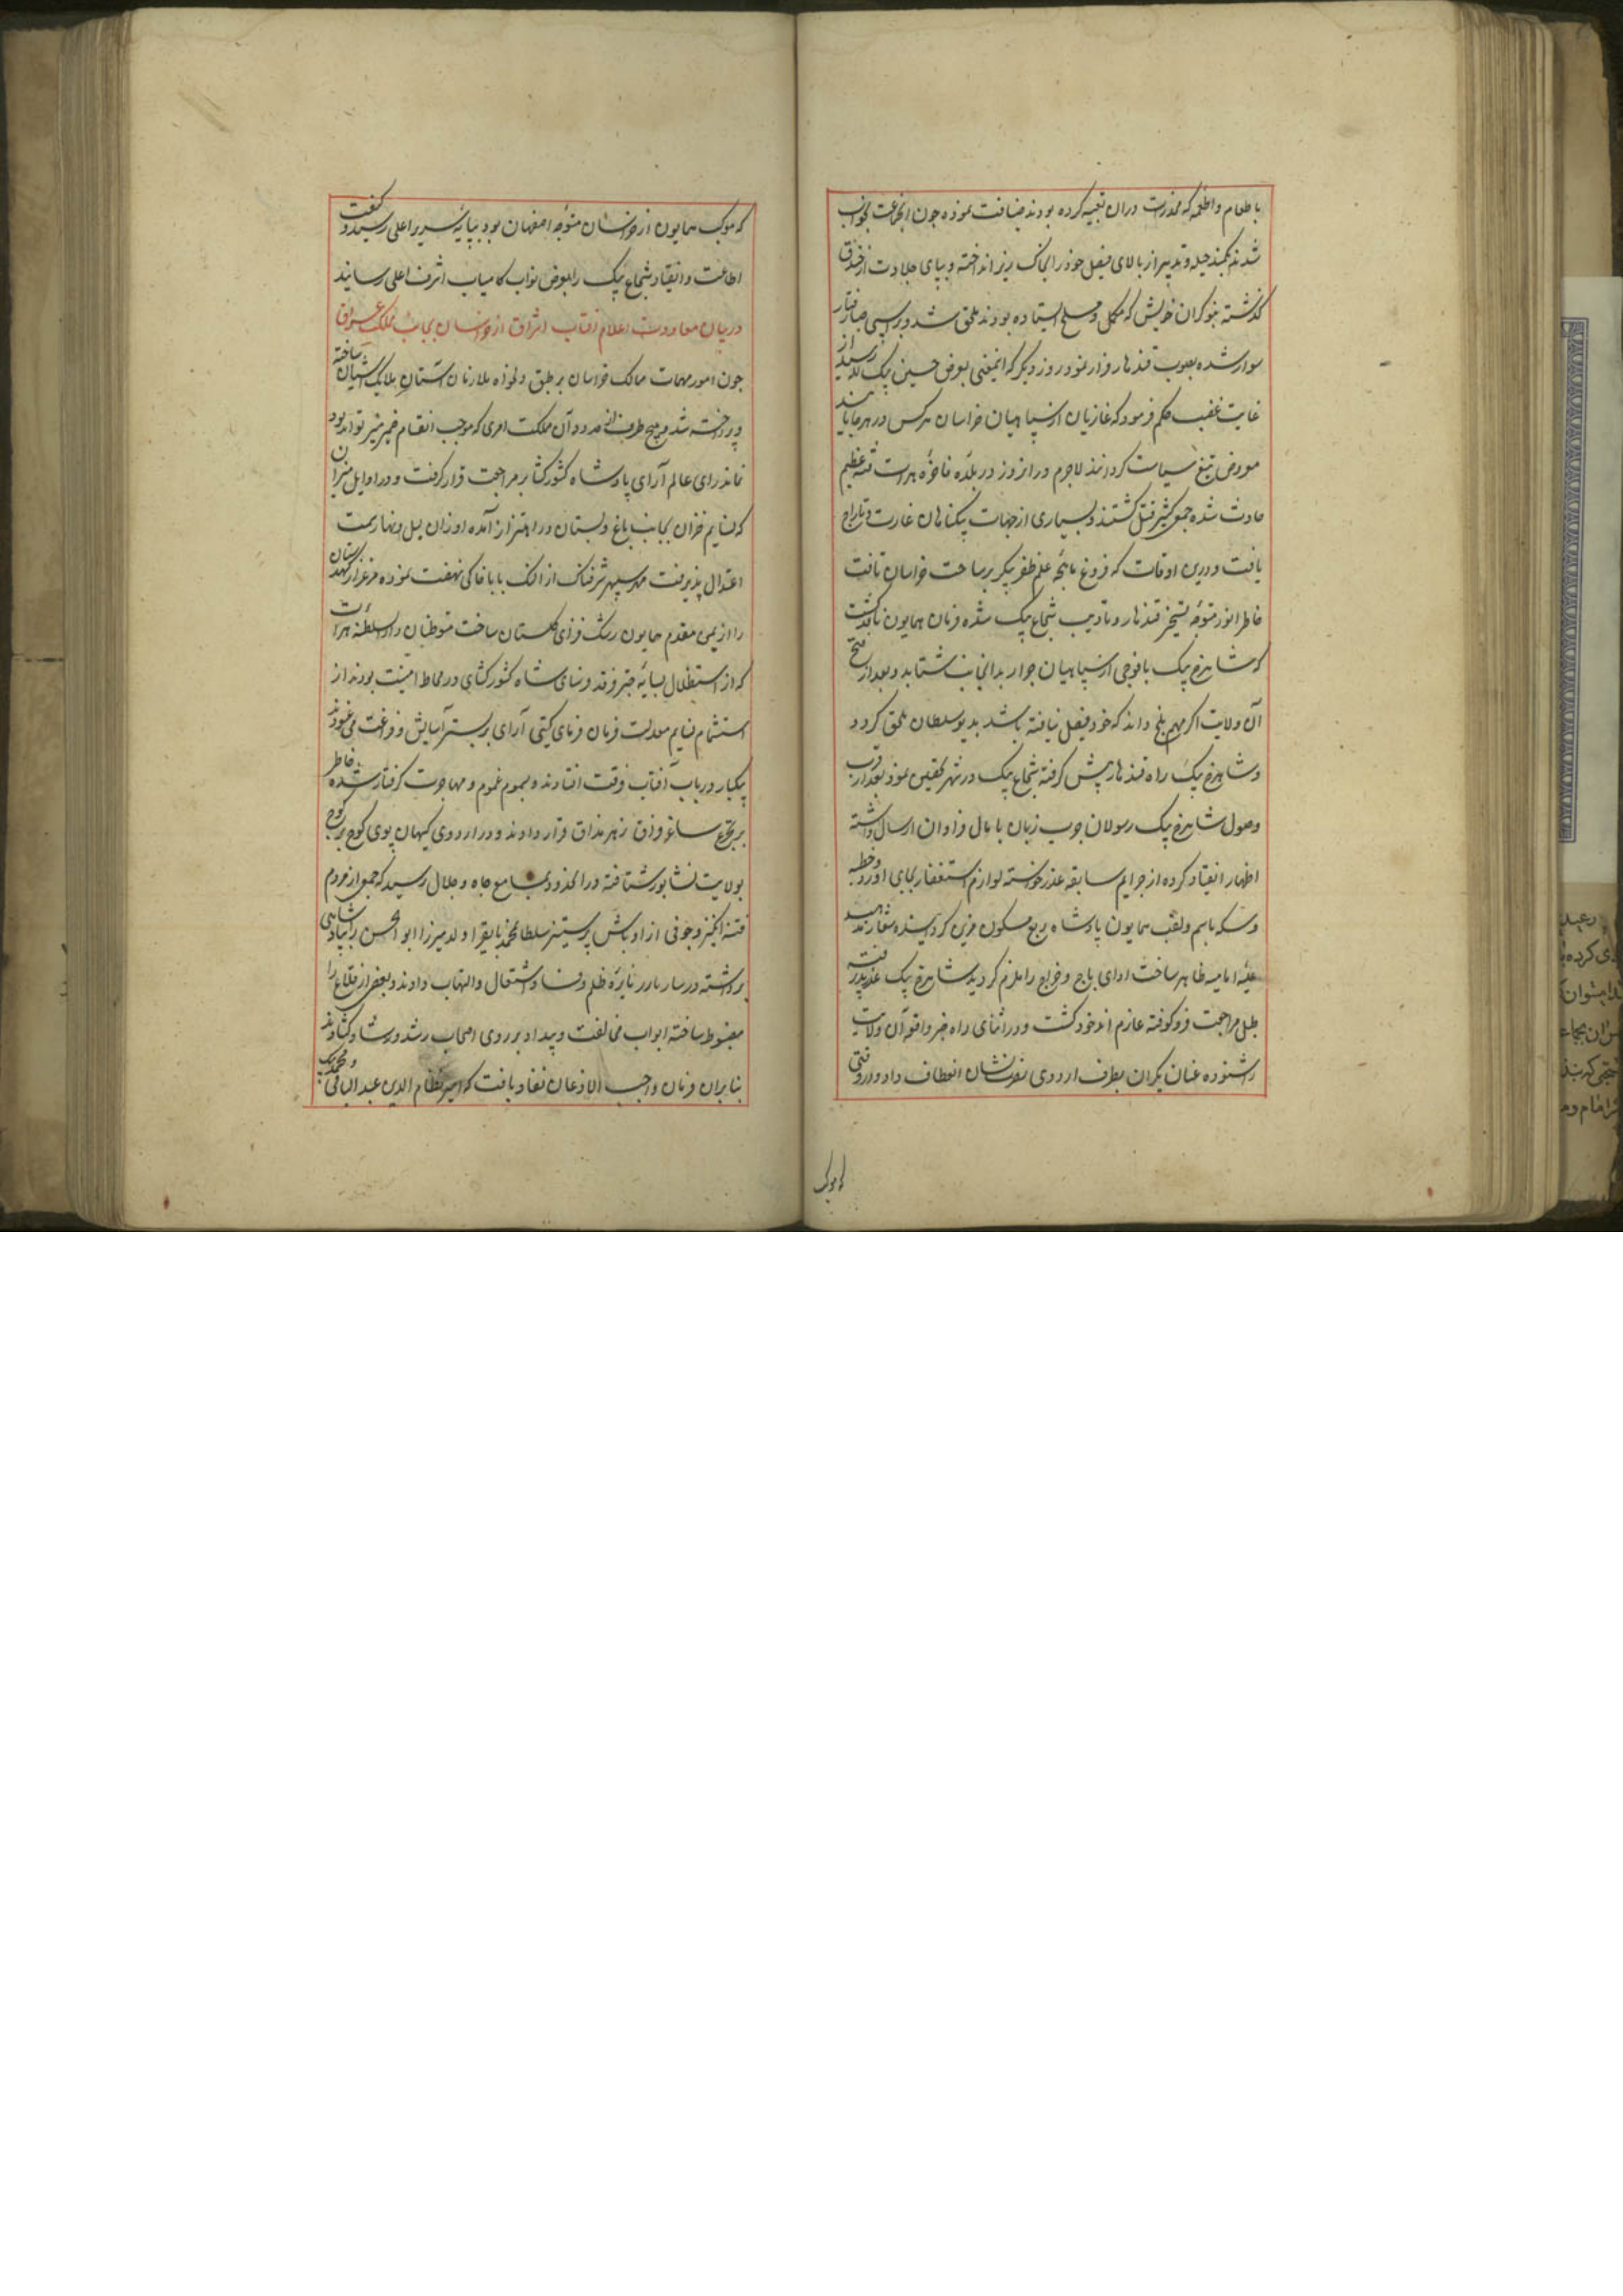 با طعام و اطعمه که مخدرت دران تعبیه کرده بودند ضیافت نموده چون انجماعت بخواب
شدند بکمند حیله و تدبیر از بالای فیصل خود را بخاک ریز انداخته و بپای جلادت از خندق
گذشته بنوکران خویش که مکمل و مسلح ایستاده بودند ملحق شد و بر اسپی صبا رفتار
سوار شده بصوب قندهار فرار نمود روز دیگر که اینمعنی بعرض حسین بیک لله رسید از
غایت غضب حکم فرمود که غازیان از سپاهیان خراسان هرکس در هر جا یابند
معروض تیغ سیاست گردانند لاجرم در انروز در بلده فاخره هرات فتنه عظیم
حادث شده جمع کثیر بقتل گشتند و بسیاری از جهات بیگناهان غارت و تاراج
یافت و درین اوقات که فروغ ماهچه علم ظفر پیکر بر ساحت خراسان تافت
خاطر انور متوجه تسخیر قندهار و تادیب شجاع بیک شده فرمان همایون نافذ گشت
که شاهرخ بیک با فوجی از سپاهیان جرار بدانجانب شتابد و بعد از فتح
آن ولایت اگر مهم بلخ داند که خود فیصل نیافته باشد بدیو سلطان ملحق گردد
و شاهرخ بیک راه قندهار پیش گرفته شجاع بیک در شهر تحصن نمود بعد از قرب
وصول شاهرخ بیک رسولان چرب زبان با مال فراوان ارسال داشته
اظهار انقیاد کرده از جرایم سابقه عذر خواسته لوازم استغفار بجای اورد و خطبه
و سکه باسم و لقب همایون پادشاه ربع مسکون مزین گردانیده شعار مذهب
علیه امامیه ظاهر ساخت ادای باج و خراج را ملزم گردید شاهرخ بیک عذر پذیرفته
طبل مراجعت فرو کوفته عازم اندخود گشت و در اثنای راه خبر واقعه آن ولایت
را شنوده عنان یکران بطرف اردوی نصرت نشان انعطاف داد و در وقتی
که موکب
که موکب همایون از خراسان متوجه اصفهان بود بپایه سریر اعلی رسید و کیفیت
اطاعت و انقیاد شجاع بیک را بعرض نواب کامیاب اشرف اعلی رسانید
در بیان معاودت اعلام افتاب اشراق از خراسان بجانب مملکت عراق
چون امور مهمات ممالک خراسان بر طبق دلخواه ملازمان آستان ملایک آشیان ساخته
و پرداخته شد و هیچ طرف از حدود آن مملکت امری که موجب انتقام ضمیر منیر تواند بود
نماند رای عالم آرای پادشاه کشور گشا بر مراجعت قرار گرفت و در اوایل میزان
که نسایم خزان بجانب باغ و بستان در اهتزاز آمده اوزان لیل و نهار سمت
اعتدال پذیرفت مهد سپهر شرفناک از النگ بابا خاکی نهضت نموده مرغزار کهدستان
را از یمن مقدم همایون رشک فزای گلستان ساخت متوطنان دار السلطنه هرات
که از استظلال بسایه چتر فرقد فرسای شاه کشور گشای در محاط امنیت بودند از
استشمام نسایم معدلت فرمان فرمای گیتی آرای بر بستر آسایش و فراغت می غنودند
بیکبار در باب آفتاب فرقت افتادند و بسموم غموم و مهاجرت گرفتار شده خاطر
بر تجرع ساغر فراق زهر مذاق قرار دادند و در اردوی کیهان پوی کوچ بر کوچ
بولایت نشابور شتافته در انحدود بمسامع جاه و جلال رسید که جمع از مردم
فتنه انگیز و جوقی از اوباش پر ستیز سلطان محمد بایقرا ولد میرزا ابو الحسن را بپادشاهی
برداشته در بار بار نایره ظلم و فساد اشتعال و التهاب دادند و بعضی از قلاع را
مضبوط ساخته ابواب مخالفت و بیداد بر روی اصحاب رشد و رشاد گشادند
بنابران فرمان واجب الاذعان نفاذ یافت که امیر نظام الدین عبد الباقی و محمد بیک